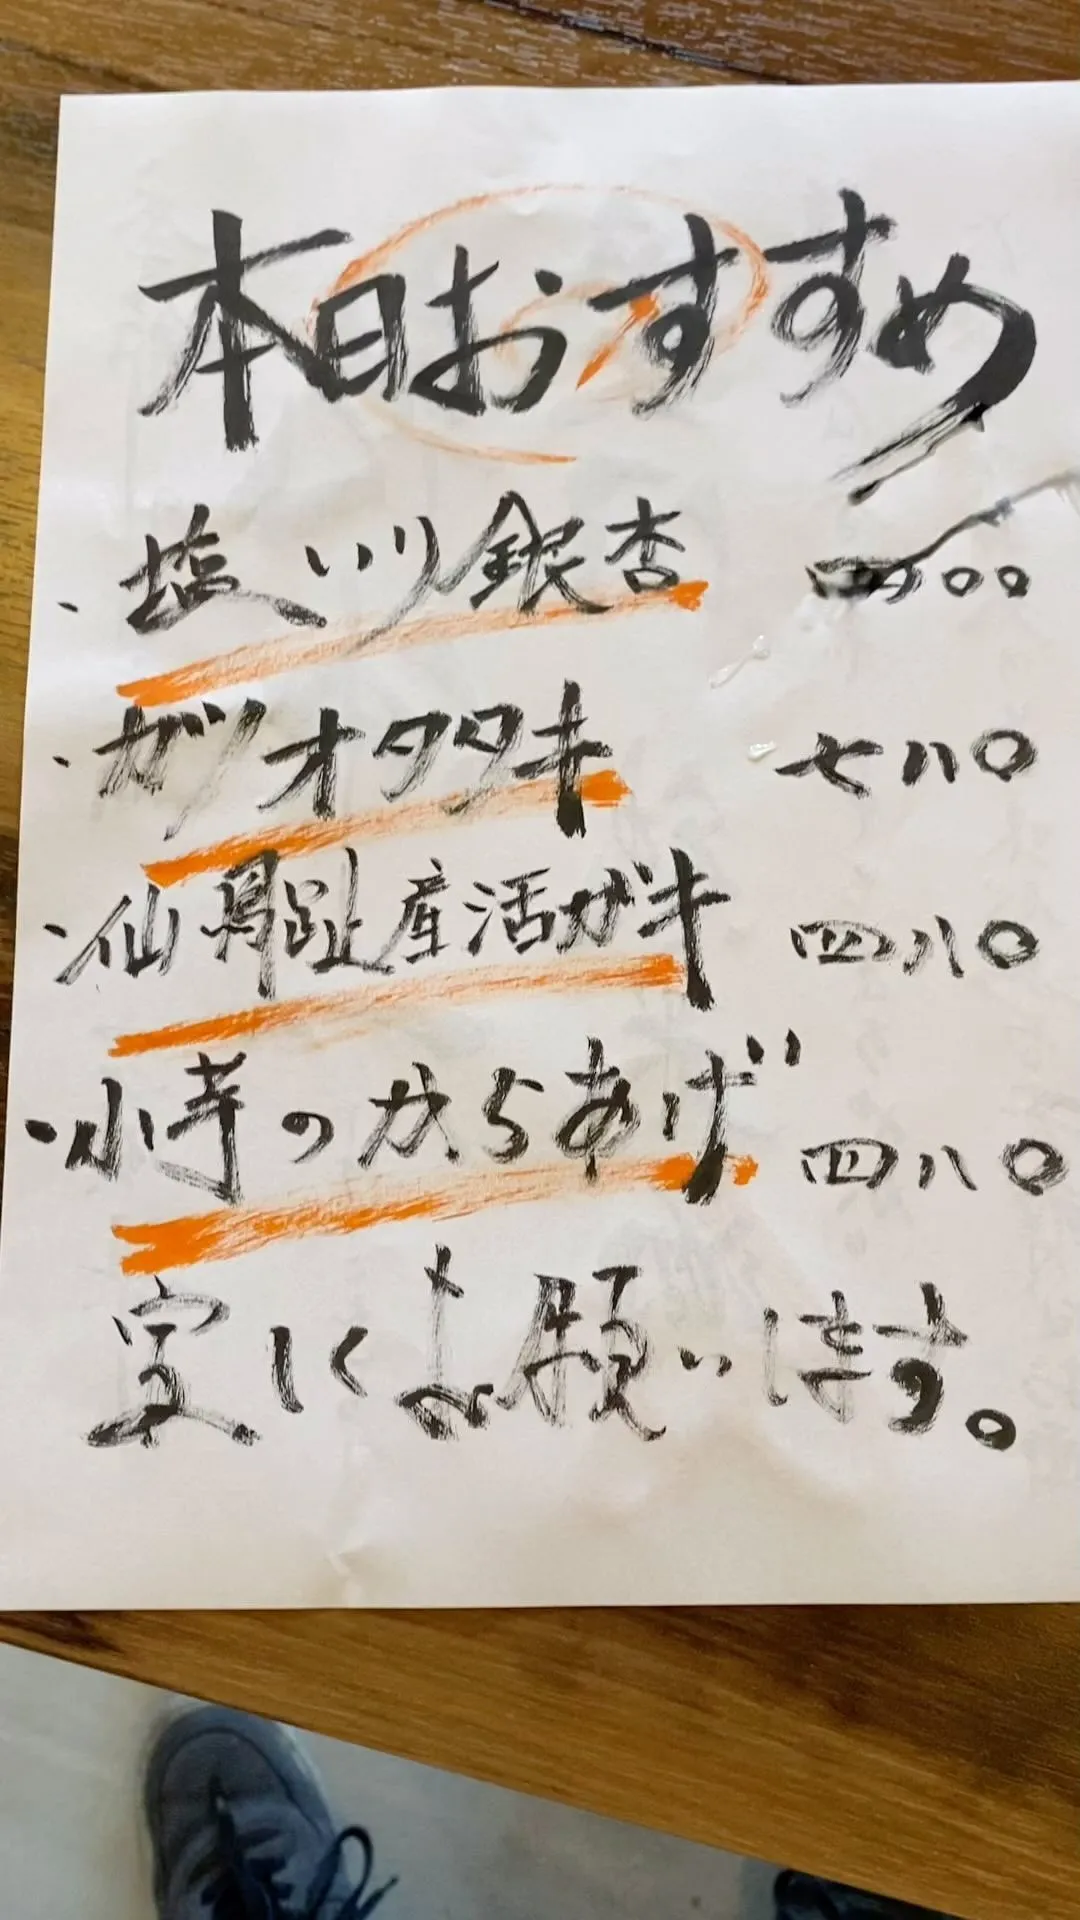 本日おすすめ
・塩いり銀杏 四〇〇
・カツオタタキ 七八〇
・仙鳳趾産活ガキ 四八〇
・小芋のからあげ 四八〇
宜しくお願いします。